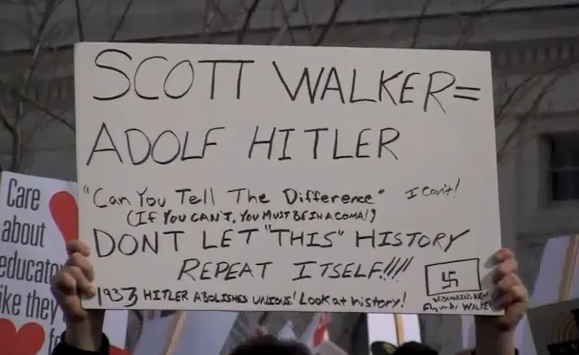 SCOTT WALKER=
ADOLF HITLER
"Can You Tell The Difference" I can't!
(IF YOU CAN'T, YOU MUST BE IN A COMA!)
DONT LET "THIS" HISTORY
REPEAT ITSELF!!!!
1933 HITLER ABOLISHES UNIONS! Look at history!
WISCONSIN NEW
Flag under WALKER
Care
about
educato
like they